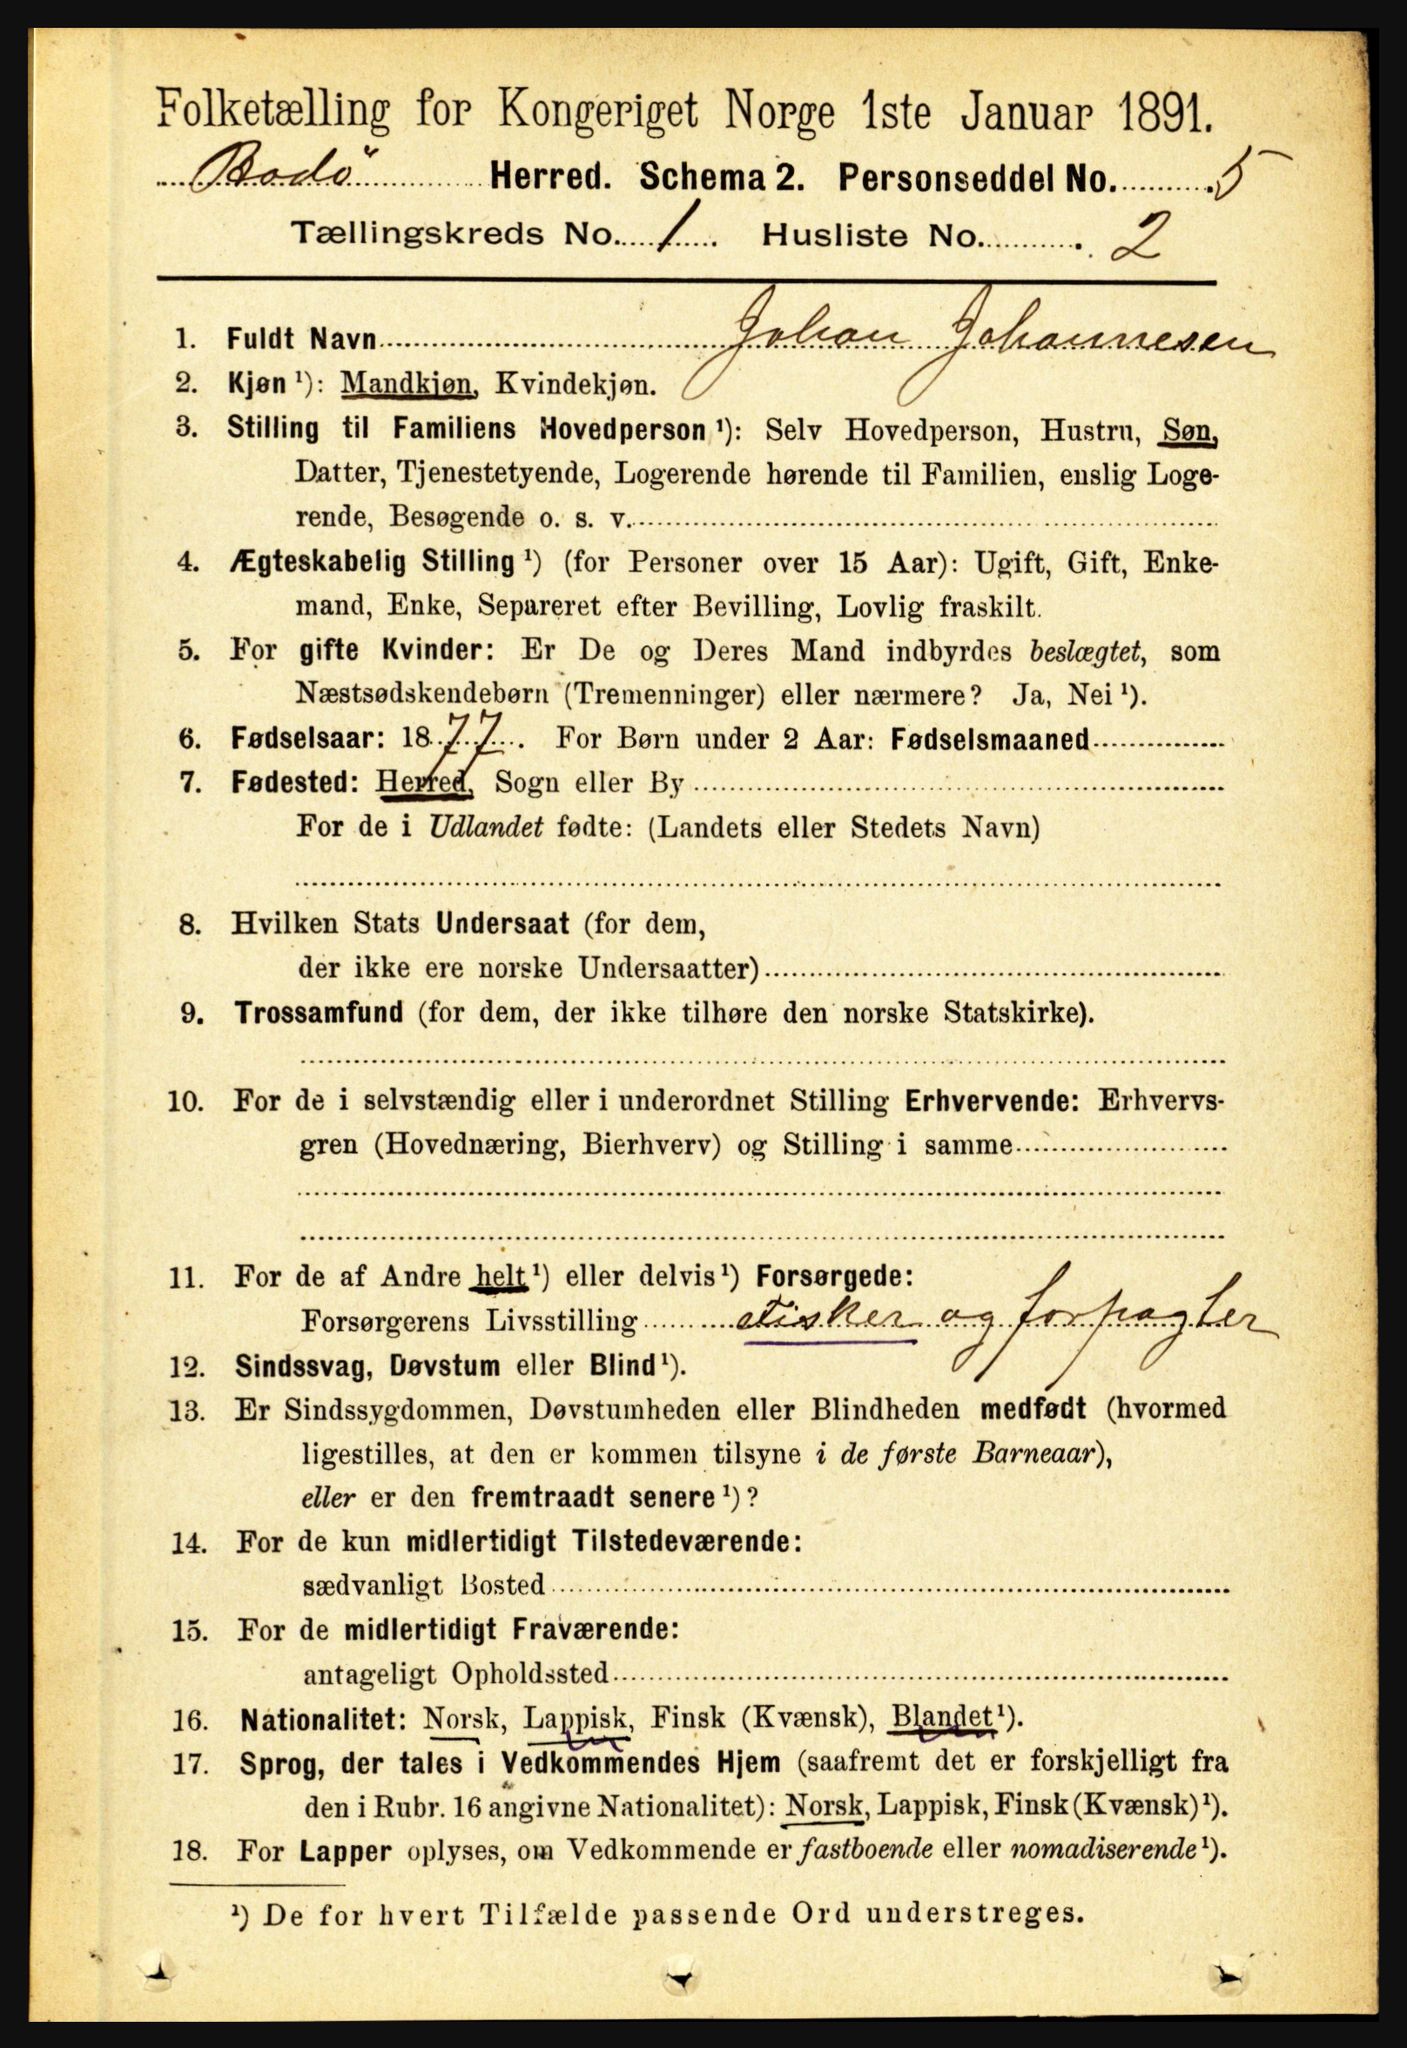 Folketælling for Kongeriget Norge 1ste Januar 1891.
Bodö Herred. Schema 2. Personseddel No. 5
Tællingskreds No. 1. Husliste No. 2
1. Fuldt Navn Johan Johannesen
2. Kjøn ¹): Mandkjøn, Kvindekjøn.
3. Stilling til Familiens Hovedperson ¹): Selv Hovedperson, Hustru, Søn,
Datter, Tjenestetyende, Logerende hørende til Familien, enslig Loge-
rende, Besøgende o. s. v.
4. Ægteskabelig Stilling ¹) (for Personer over 15 Aar): Ugift, Gift, Enke-
mand, Enke, Separeret efter Bevilling, Lovlig fraskilt.
5. For gifte Kvinder: Er De og Deres Mand indbyrdes beslægtet, som
Næstsødskendebørn (Tremenninger) eller nærmere? Ja, Nei ¹).
6. Fødselsaar: 1877. For Børn under 2 Aar: Fødselsmaaned
7. Fødested: Herred, Sogn eller By
For de i Udlandet fødte: (Landets eller Stedets Navn)
8. Hvilken Stats Undersaat (for dem,
der ikke ere norske Undersaatter)
9. Trossamfund (for dem, der ikke tilhøre den norske Statskirke).
10. For de i selvstændig eller i underordnet Stilling Erhvervende: Erhvervs-
gren (Hovednæring, Bierhverv) og Stilling i samme
11. For de af Andre helt ¹) eller delvis ¹) Forsørgede:
Forsørgerens Livsstilling Fisker og forpagter
12. Sindssvag, Døvstum eller Blind ¹).
13. Er Sindssygdommen, Døvstumheden eller Blindheden medfødt (hvormed
ligestilles, at den er kommen tilsyne i de første Barneaar),
eller er den fremtraadt senere ¹)?
14. For de kun midlertidigt Tilstedeværende:
sædvanligt Bosted
15. For de midlertidigt Fraværende:
antageligt Opholdssted
16. Nationalitet: Norsk, Lappisk, Finsk (Kvænsk), Blandet ¹).
17. Sprog, der tales i Vedkommendes Hjem (saafremt det er forskjelligt fra
den i Rubr. 16 angivne Nationalitet): Norsk, Lappisk, Finsk (Kvænsk) ¹).
18. For Lapper oplyses, om Vedkommende er fastboende eller nomadiserende ¹).
¹) De for hvert Tilfælde passende Ord understreges.